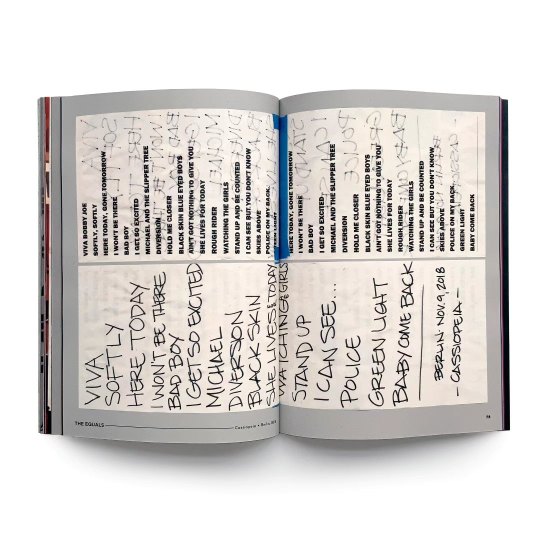 VIVA BOBBY JOE
SOFTLY, SOFTLY
HERE TODAY, GONE TOMORROW
I WON'T BE THERE
BAD BOY
I GET SO EXCITED
MICHAEL AND THE SLIPPER TREE
DIVERSION
HOLD ME CLOSER
BLACK SKIN BLUE EYED BOYS
AIN'T GOT NOTHING TO GIVE YOU
SHE LIVES FOR TODAY
ROUGH RIDER
WATCHING THE GIRLS
STAND UP AND BE COUNTED
I CAN SEE BUT YOU DON'T KNOW
SKIES ABOVE
POLICE ON MY BACK
GREEN LIGHT
VIVA
SOFTLY
HERE TODAY
I WON'T BE THERE
BAD BOY
I GET SO EXCITED
MICHAEL
DIVERSION
BLACK SKIN
SHE LIVES 4 TODAY
WATCHING GIRLS
THE EQUALS
HERE TODAY, GONE TOMORROW
I WON'T BE THERE
BAD BOY
I GET SO EXCITED
MICHAEL AND THE SLIPPER TREE
DIVERSION
HOLD ME CLOSER
BLACK SKIN BLUE EYED BOYS
AIN'T GOT NOTHING TO GIVE YOU
SHE LIVES FOR TODAY
ROUGH RIDER
WATCHING THE GIRLS
STAND UP AND BE COUNTED
I CAN SEE BUT YOU DON'T KNOW
SKIES ABOVE
POLICE ON MY BACK
GREEN LIGHT
BABY COME BACK
STAND UP
I CAN SEE...
POLICE
GREEN LIGHT
BABY COME BACK
BERLIN NOV. 9, 2018
- CASSIOPEIA -